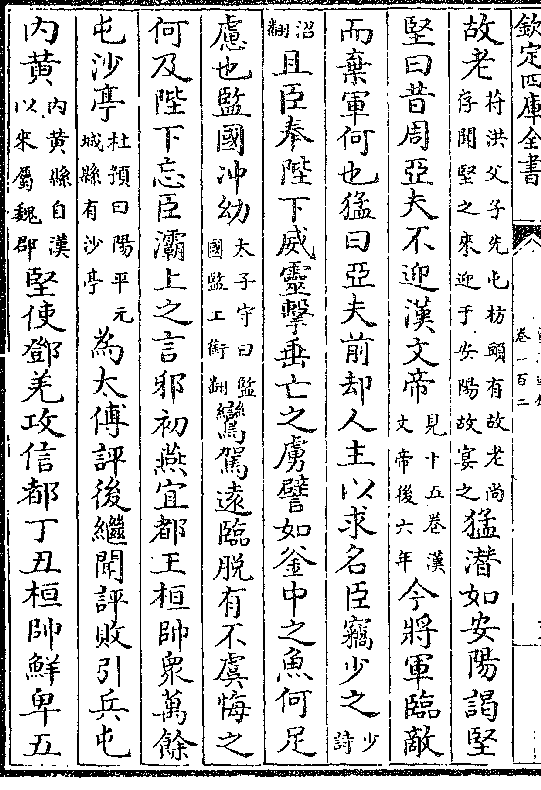 欽定四庫全書
卷一百二
故老苻洪父子先屯枋頭有故老尚存聞堅之來迎于安陽故宴之猛潛如安陽謁堅
堅曰昔周亞夫不迎漢文帝見十五卷漢文帝後六年今將軍臨敵
而棄軍何也猛曰亞夫前却人主以求名臣竊少之少詩
沼翻且臣奉陛下威靈擊垂亡之虜譬如釜中之魚何足
慮也監國冲幼太子守曰監國監工銜翻鸞駕遠臨脱有不虞悔之
何及陛下忘臣灞上之言邪初燕宜都王桓帥衆萬餘
屯沙亭杜預曰陽平元城縣有沙亭為太傅評後繼聞評敗引兵屯
内黄内黄縣自漢以來屬魏郡堅使鄧羌攻信都丁丑桓帥鮮卑五